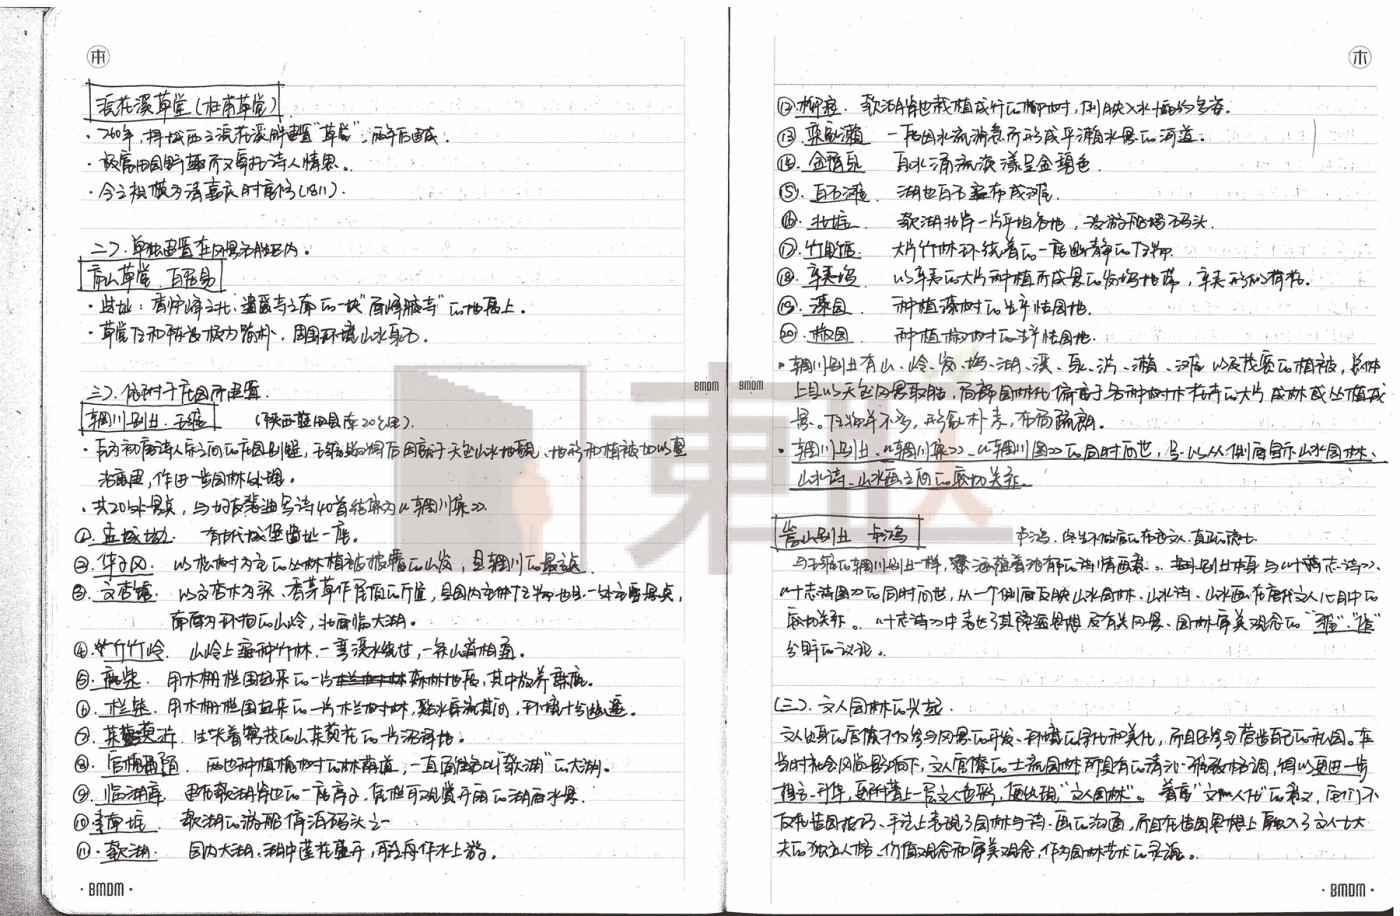 浣花溪草堂(杜甫草堂)
·760年,择城西之浣花溪畔建置“草堂”,两年后建成.
·极富田园野趣而又寄托诗人情思.
·今之规模为清嘉庆时重修(1811).
二).单独建置在风景名胜区内.
庐山草堂 白居易
·选址:香炉峰之北,遗爱寺之南的一块“面峰腋寺”的地段上.
·草堂建筑和陈设极为简朴,周围环境山水
三).依附于庄园而建置
辋川别业.王维 (陕西蓝田县南20公里).
·共20处景点,与好友裴迪写诗40首结集为《辋川集》.
①孟城坳. 有古代城堡遗址一座.
②华子冈. 以松树为主的丛林植被披覆的山岗,是辋川的最高点
③文杏馆. 以文杏木为梁、香茅草作屋顶的厅堂,是园内主体建筑物也是一处主要景点,
南面为环抱的山岭,北面临大湖.
④斤竹岭. 山岭上遍种竹林.一弯溪水绕过,一条山道相通.
⑤鹿柴. 用木栅栏围起来的一片森林地段,其中放养麋鹿.
⑥木兰柴. 用木栅栏围起来的一片木兰树林,溪水穿流其间,环境十分幽邃.
⑦茱萸沜 生长着繁茂的山茱萸花的一片沼泽地.
⑧宫槐陌 两边种植槐树的林荫道,一直通往名叫“欹湖”的大湖.
⑨临湖亭 建在欹湖岸边的一座亭子,凭栏可观赏开阔的湖面水景.
⑩南垞 欹湖的游船停泊码头之一
⑪欹湖. 园内大湖.湖中莲花盛开,可泛舟作水上游.
·BMDM·
⑫柳浪. 欹湖岸边栽植成行的柳树,倒映入水最为多姿.
⑬栾家濑 一段因水流湍急而形成平濑水景的河道.
⑭金屑泉 泉水涌流涣漾呈金碧色.
⑮白石滩. 湖边白石遍布成滩.
⑯北垞 欹湖北岸一片平坦谷地,设游船码头.
⑰竹里馆 大片竹林环绕着的一座幽静的建筑物.
⑱辛夷坞 以辛夷的大片种植而成景的岗坞地带,辛夷形似荷花.
⑲漆园 种植漆树的生产性园地.
⑳椒园 种植椒树的生产性园地.
·辋川别业有山、岭、岗、坞、湖、溪、泉、沜、濑、滩 以及茂密的植被,总体
上是以天然风景取胜,局部园林化偏重于各种树木花卉的大片成林或丛植成
景.建筑物并不多,形象朴素,布局疏朗.
·辋川别业、《辋川集》、《辋川图》的同时问世,足以从侧面显示山水园林、
山水诗、山水画之间的密切关系.
嵩山别业 卢鸿
与王维的辋川别业一样,蕴涵着浓郁的诗情画意.嵩山别业本身与《十志诗》、
《十志诗图》的同时问世,从一个侧面反映山水园林、山水诗、山水画在唐代文人心目中的
密切关系.
(三).文人园林的兴起
文人出身的官僚不仅参与风景的开发、环境的绿化和美化,而且还参与营造自己的私园.在
当时社会风尚影响下,文人官僚的士流园林所具有的清沁雅致格调,得以更进一步
提高、升华,更附着上一层文人色彩,便出现“文人园林”.
在造园技巧、手法上表现了园林与诗、画的沟通,而且在造园思想上融入了文人士大
夫的独立人格、价值观念和审美观念,作为园林艺术的灵魂.
·BMDM·
BMDM
BMDM
東联